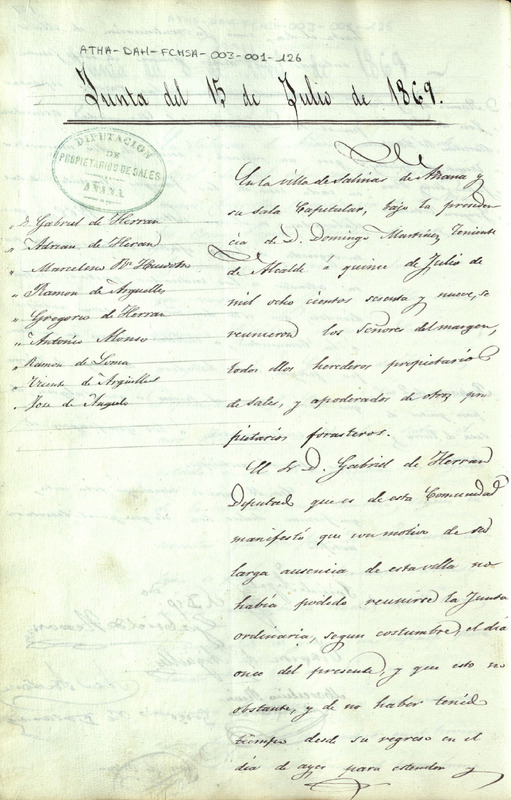 ATHA-DAH-FCMSA-003-001-126
Junta del 15 de Julio de 1869.
DIPUTACION
DE
PROPIETARIOS DE SALES
AÑANA
" D. Gabriel de Herran
" Adrian de Heran
" Marcelino
" Ramon de Arguelles
" Gregorio de Herran
" Antonio Alonso
" Ramon de
" Vicente de Argüelles
" Jose de Angulo
En la villa de Salinas de Añana y
su sala Capitular, bajo la presiden
cia de D. Domingo Martinez Teniente
de Alcalde á quince de Julio de
mil ocho cientos sesenta y nueve, se
reunieron los Señores del margen,
todos ellos herederos propietarios
de sales, y apoderados de otros pro
pietarios forasteros.
El Sr D. Gabriel de Herran
Diputado que es de esta Comunidad
manifestó que con motivo de su
larga ausencia de esta villa no
había podido reunirse la Junta
ordinaria, segun costumbre, el dia
once del presente, y que esto no
obstante, y de no haber tenido
tiempo desde su regreso en el
dia de ayer para estender y